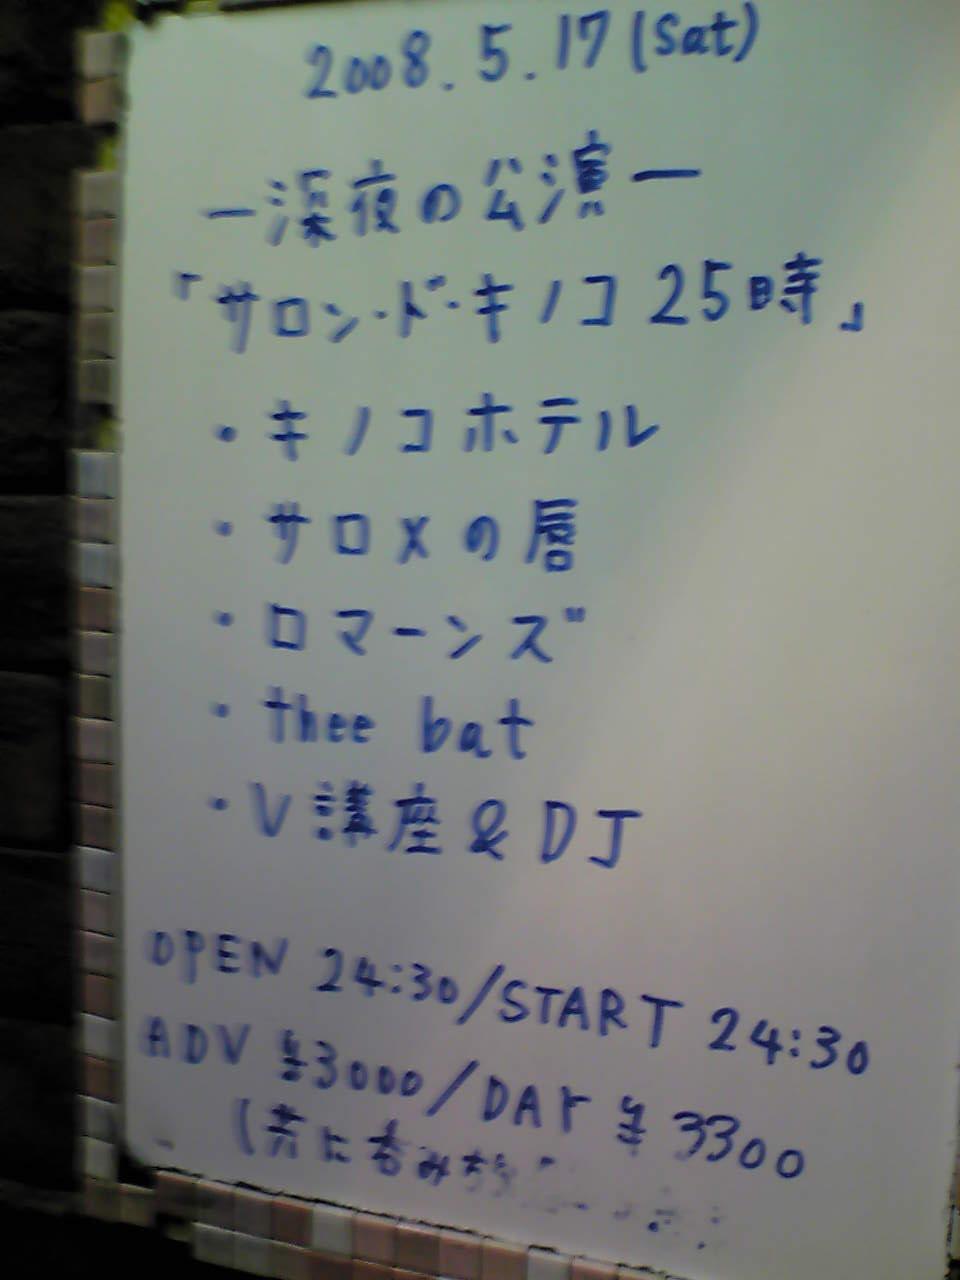 2008.5.17(Sat)
ー深夜の公演ー
「サロン・ド・キノコ 25時」
・キノコホテル
・サロメの唇
・ロマーンズ"
・thee bat
・V講座&DJ
OPEN 24:30/START 24:30
ADV ¥3000/DAY ¥3300
(共に